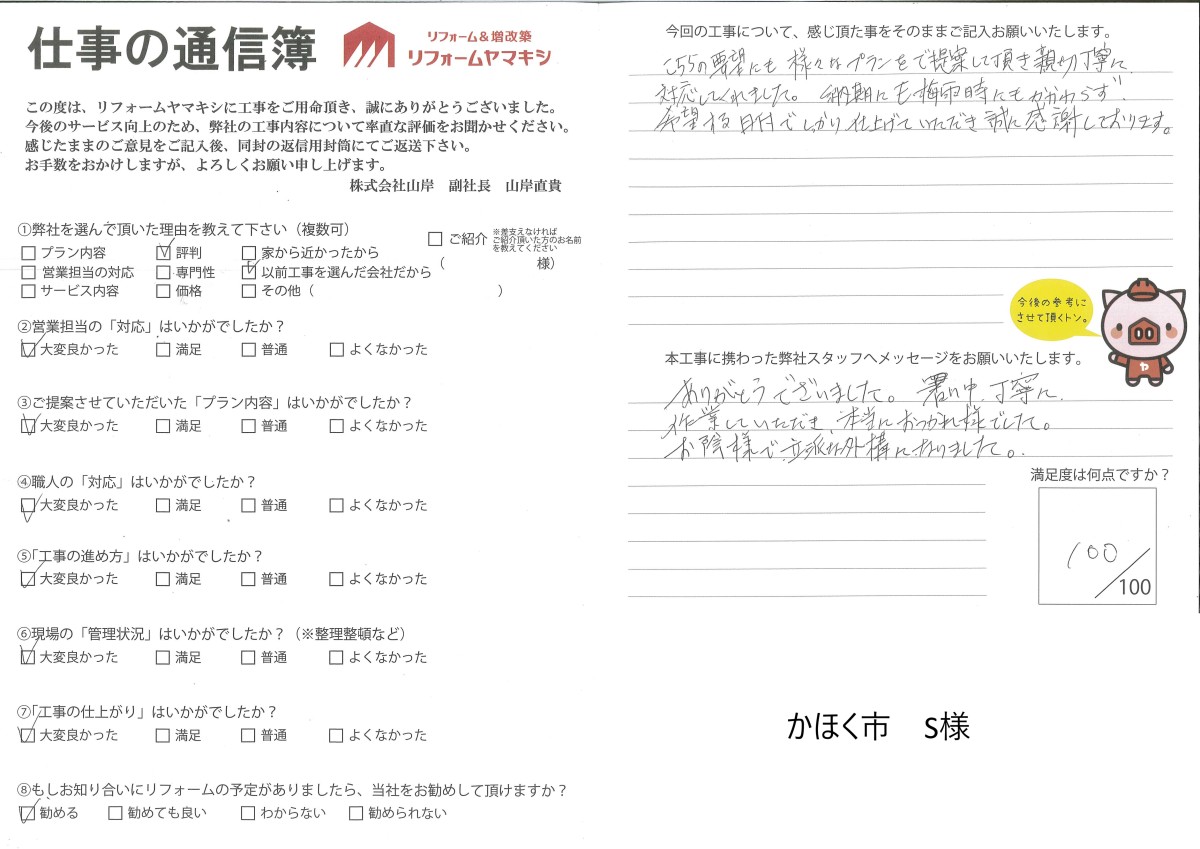 仕事の通信簿
リフォーム&増改築
リフォームヤマキシ
この度は、リフォームヤマキシに工事をご用命頂き、誠にありがとうございました。
今後のサービス向上のため、弊社の工事内容について率直な評価をお聞かせください。
感じたままのご意見をご記入後、同封の返信用封筒にてご返送下さい。
お手数をおかけしますが、よろしくお願い申し上げます。
株式会社山岸 副社長 山岸直貴
①弊社を選んで頂いた理由を教えて下さい（複数可）
□ プラン内容 ☑ 評判 □ 家から近かったから □ ご紹介 ※差支えなければ
ご紹介頂いた方のお名前
を教えてください
□ 営業担当の対応 □ 専門性 ☑ 以前工事を選んだ会社だから （ 様）
□ サービス内容 □ 価格 □ その他（ ）
②営業担当の「対応」はいかがでしたか？
☑ 大変良かった □ 満足 □ 普通 □ よくなかった
③ご提案させていただいた「プラン内容」はいかがでしたか？
☑ 大変良かった □ 満足 □ 普通 □ よくなかった
④職人の「対応」はいかがでしたか？
☑ 大変良かった □ 満足 □ 普通 □ よくなかった
⑤「工事の進め方」はいかがでしたか？
☑ 大変良かった □ 満足 □ 普通 □ よくなかった
⑥現場の「管理状況」はいかがでしたか？（※整理整頓など）
☑ 大変良かった □ 満足 □ 普通 □ よくなかった
⑦「工事の仕上がり」はいかがでしたか？
☑ 大変良かった □ 満足 □ 普通 □ よくなかった
⑧もしお知り合いにリフォームの予定がありましたら、当社をお勧めして頂けますか？
☑ 勧める □ 勧めても良い □ わからない □ 勧められない
今回の工事について、感じ頂た事をそのままご記入お願いいたします。
こちらの要望にも様々なプランをご提案して頂き親切丁寧に
対応してくれました。 納期にも梅雨時にもかかわらず、
希望する日付でしっかり仕上げていただき誠に感謝しております。
今後の参考に
させて頂くトン。
ヤ
本工事に携わった弊社スタッフへメッセージをお願いいたします。
ありがとうございました。 暑い中、丁寧に
作業していただき、本当におつかれ様でした。
お陰様で立派な外構になりました。
満足度は何点ですか？
100
/100
かほく市 S様